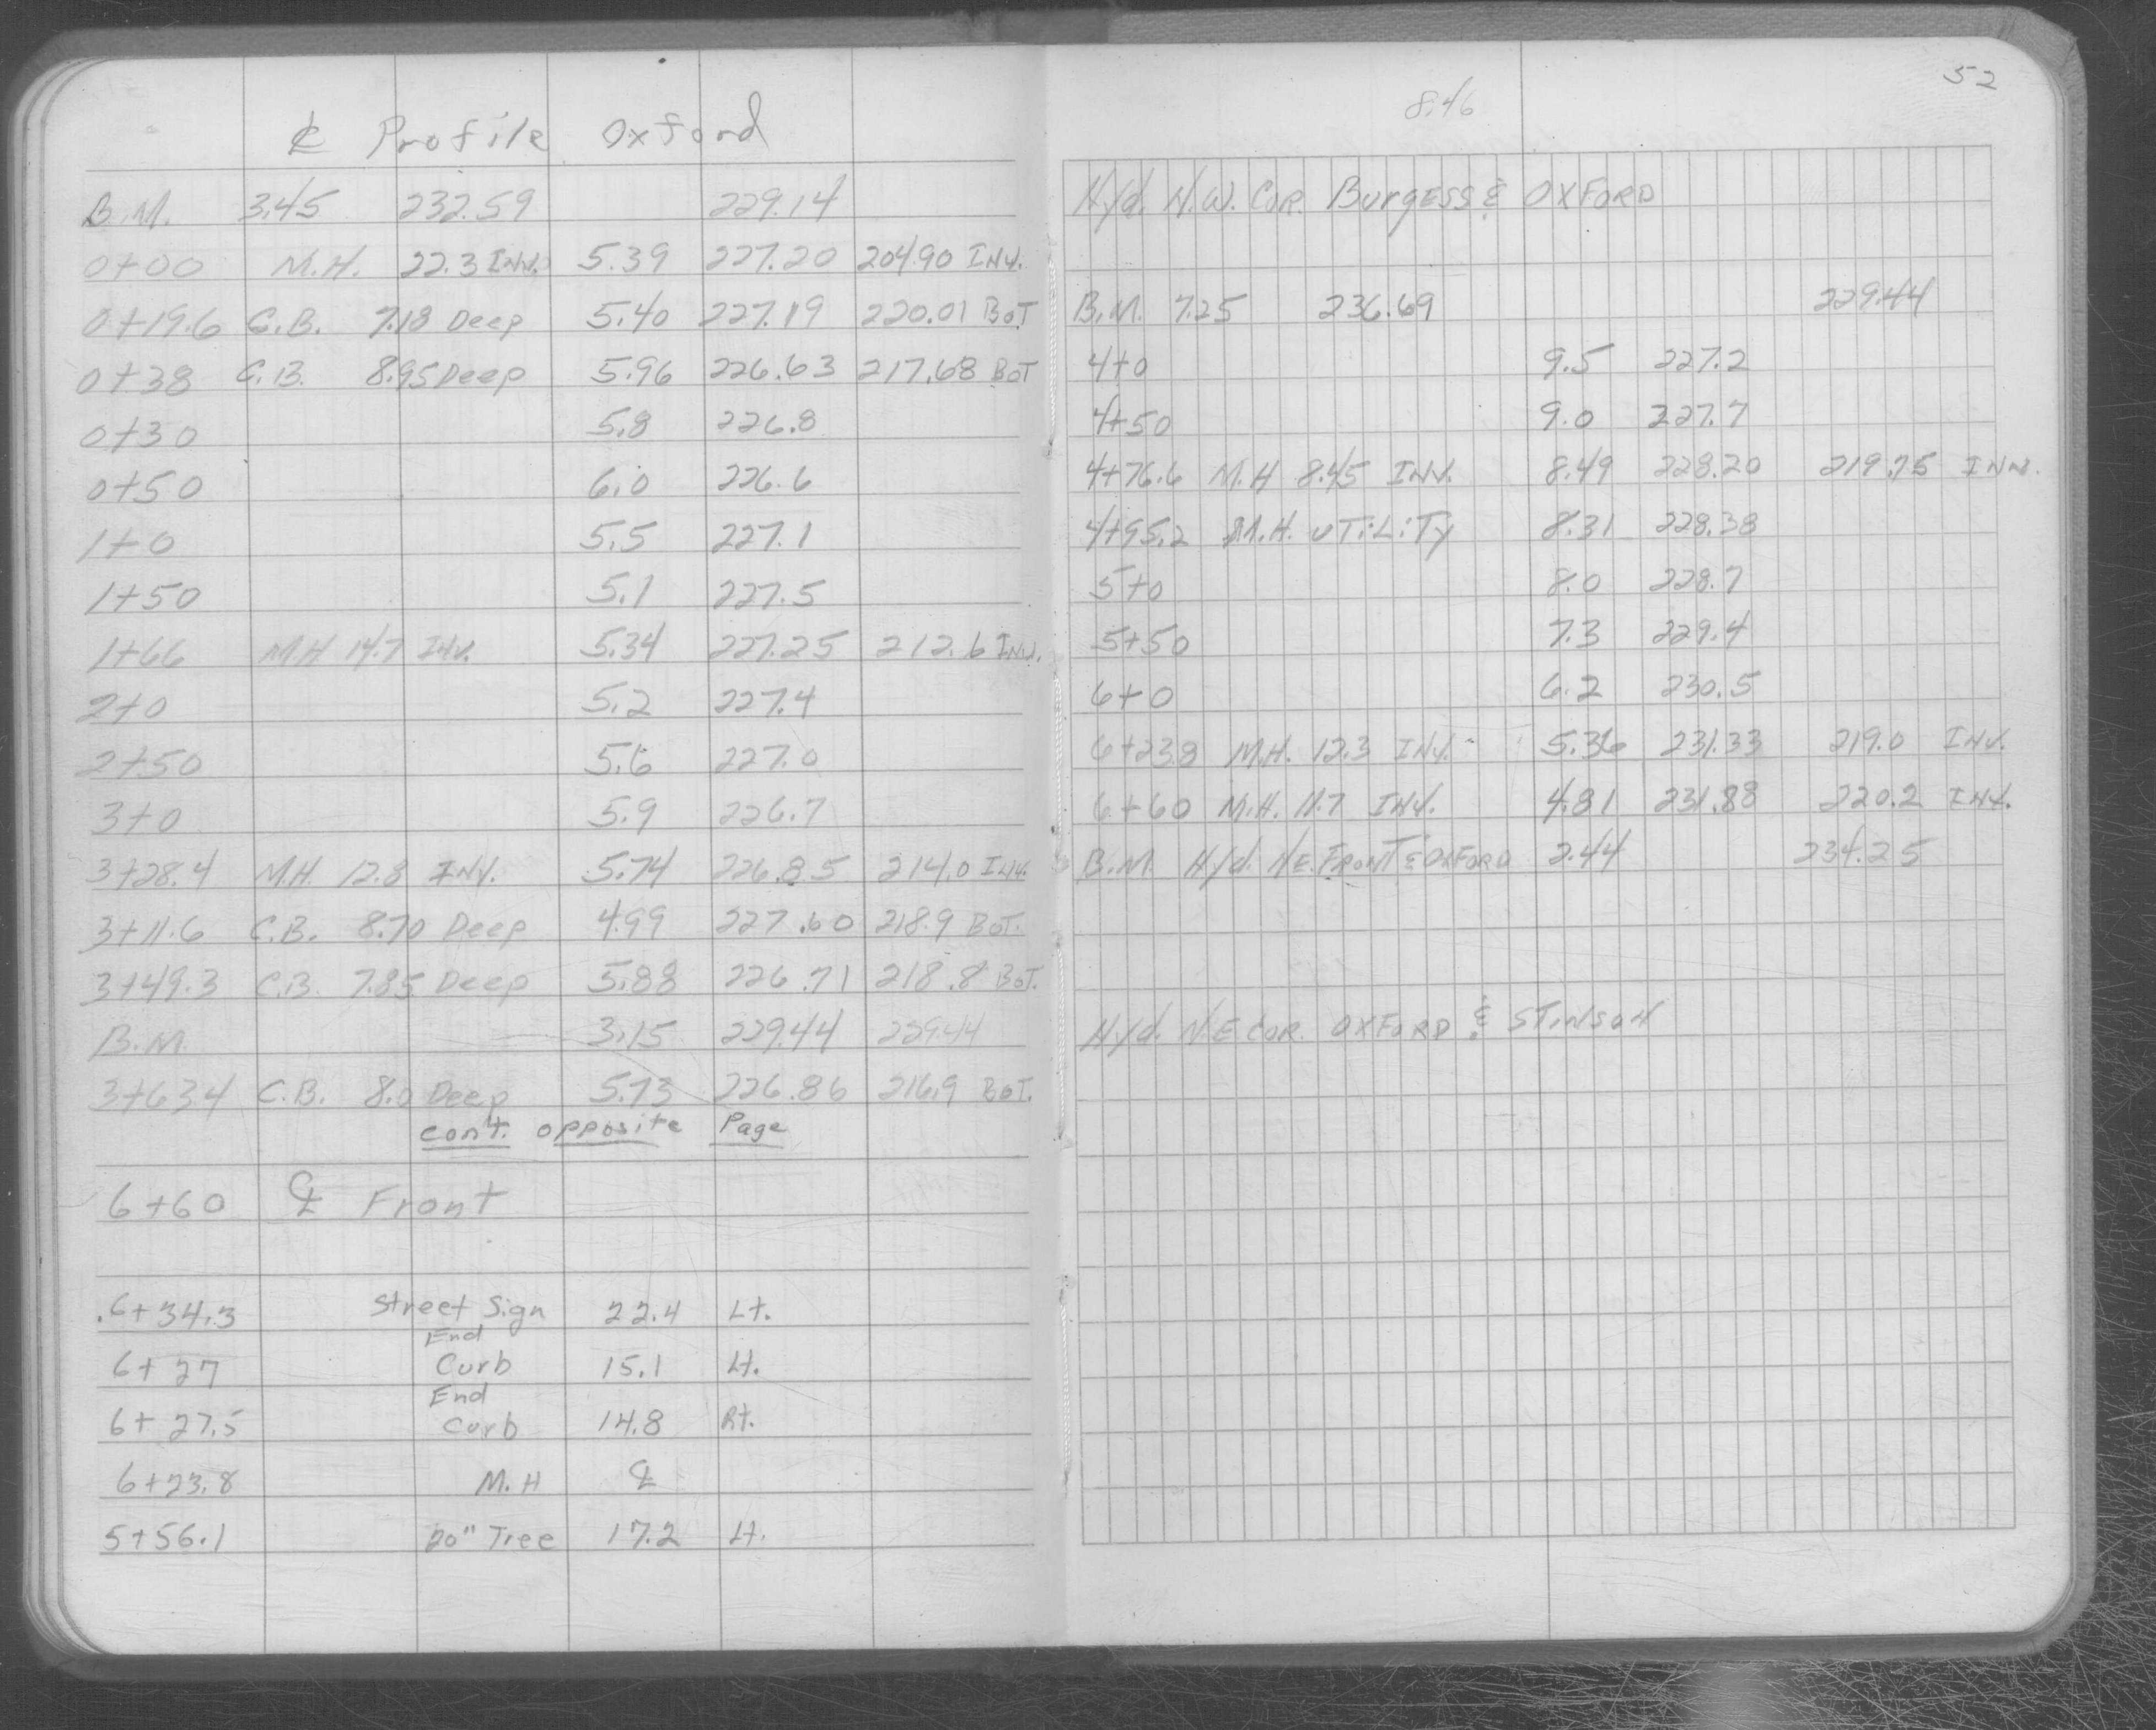 ℄ Profile Oxford
B.M. 3.45 232.59 229.14
0+00 M.H. 22.3 INV. 5.39 227.20 204.90 INV.
0+19.6 C.B. 7.18 Deep 5.40 227.19 220.01 BOT
0+38 C.B. 8.95 Deep 5.96 226.63 217.68 BOT
0+30 5.8 226.8
0+50 6.0 226.6
1+0 5.5 227.1
1+50 5.1 227.5
1+66 M.H 14.7 INV. 5.34 227.25 212.6 INV.
2+0 5.2 227.4
2+50 5.6 227.0
3+0 5.9 226.7
3+28.4 M.H. 12.8 INV. 5.74 226.85 214.0 INV.
3+11.6 C.B. 8.70 Deep 4.99 227.60 218.9 BOT.
3+49.3 C.B. 7.85 Deep 5.88 226.71 218.8 BOT.
B.M. 3.15 229.44 229.44
3+63.4 C.B. 8.0 Deep 5.73 226.86 216.9 BOT.
Cont. opposite Page
6+60 ℄ Front
6+34.3 Street Sign 22.4 Lt.
6+27 End Curb 15.1 Lt.
6+27.5 End Curb 14.8 Rt.
6+23.8 M.H ℄
5+56.1 20" Tree 17.2 Lt.
52
8.46
Hyd. N.W. Cor. Burgess & OXFORD
B.M. 7.25 236.69 229.44
4+0 9.5 227.2
4+50 9.0 227.7
4+76.6 M.H 8.45 INV. 8.49 228.20 219.75 INV.
4+95.2 M.H. UTILITY 8.31 228.38
5+0 8.0 228.7
5+50 7.3 229.4
6+0 6.2 230.5
6+23.8 M.H. 12.3 INV. 5.36 231.33 219.0 INV.
6+60 M.H. 11.7 INV. 4.81 231.88 220.2 INV.
B.M. Hyd. N.E. FRONT & OXFORD 2.44 234.25
Hyd. N.E COR. OXFORD & STINSON